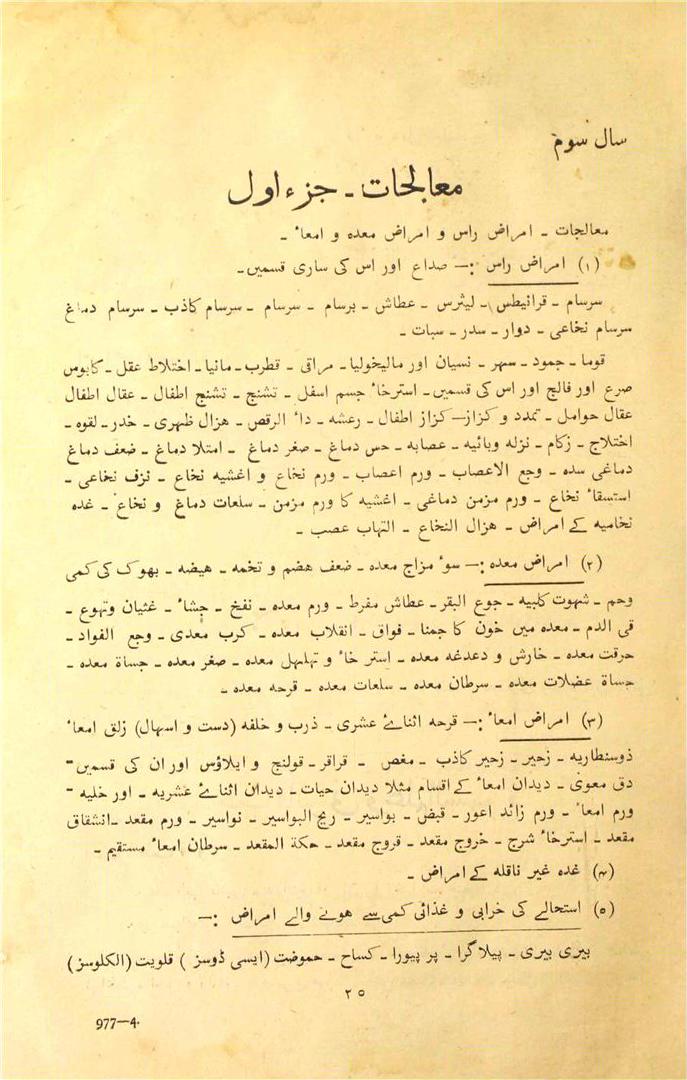 سال سوم
معالجات ـ جزء اول
معالجات ـ امراض راس و امراض معدہ و امعاٴ ـ
(۱) امراض راس :— صداع اور اس کی ساری قسمیں ـ
سرسام ـ قرانیطس ـ لیثرس ـ عطاش ـ برسام ـ سرسام ـ سرسام کاذب ـ سرسام دماغ
سرسام نخاعی ـ دوار ـ سدر ـ سبات ـ
قوما ـ جمود ـ سہر ـ نسیان اور مالیخولیا ـ مراقی ـ قطرب ـ مانیا ـ اختلاط عقل ـ کابوس
صرع اور فالج اور اس کی قسمیں ـ استرخاٴ جسم اسفل ـ تشنج ـ تشنج اطفال ـ عقال اطفال
عقال حوامل ـ تمدد و کزاز — کزاز اطفال ـ رعشہ ـ داٴ الرقص ـ ھزال ظہری ـ خدر ـ لقوہ ـ
اختلاج ـ زکام ـ نزلہ وبائیہ ـ عصابہ ـ حس دماغ ـ صغر دماغ ـ امتلا دماغ ـ ضعف دماغ
دماغی سدہ ـ وجع الاعصاب ـ ورم اعصاب ـ ورم نخاع و اغشیہ نخاع ـ نزف نخاعی ـ
استسقاٴ نخاع ـ ورم مزمن دماغی ـ اغشیہ کا ورم مزمن ـ سلعات دماغ و نخاع ـ غدہ
نخامیہ کے امراض ـ ھزال النخاع ـ التہاب عصب ـ
(۲) امراض معدہ :— سوٴ مزاج معدہ ـ ضعف ھضم و تخمہ ـ ھیضہ ـ بھوک کی کمی
وحم ـ شہوت کلبیہ ـ جوع البقر ـ عطاش مفرط ـ ورم معدہ ـ نفخ ـ جشاٴ ـ غثیان وتہوع ـ
قی الدم ـ معدہ میں خون کا جمنا ـ فواق ـ انقلاب معدہ ـ کرب معدی ـ وجع الفواد ـ
حرقت معدہ ـ خارش و دغدغہ معدہ ـ استر خاٴ و تہلہل معدہ ـ صغر معدہ ـ جساۃ معدہ ـ
جساۃ عضلات معدہ ـ سرطان معدہ ـ سلعات معدہ ـ قرحہ معدہ ـ
(۳) امراض امعاٴ :— قرحہ اثنائے عشری ـ ذرب و خلفہ (دست و اسہال) زلق امعاٴ
ذوسنطاریہ ـ زحیر ـ زحیر کاذب ـ مغص ـ قراقر ـ قولنج و ایلاؤس اور ان کی قسمیں ـ
دق معوی ـ دیدان امعاٴ کے اقسام مثلا دیدان حیات ـ دیدان اثنائے عشریہ ـ اور خلیہ ـ
ورم امعاٴ ـ ورم زائد اعور ـ قبض ـ بواسیر ـ ریح البواسیر ـ نواسیر ـ ورم مقعد ـ انشقاق
مقعد ـ استرخاٴ شرج ـ خروج مقعد ـ قروح مقعد ـ حکۃ المقعد ـ سرطان امعاٴ مستقیم ـ
(۴) غدہ غیر ناقلہ کے امراض ـ
(۵) استحالے کی خرابی و غذائی کمی سے ھونے والے امراض :—
بیری بیری ـ پیلاگرا ـ پر پیورا ـ کساح ـ حموضت (ایسی ڈوسز) قلویت (الکلوسز)
۲۵
977—4.